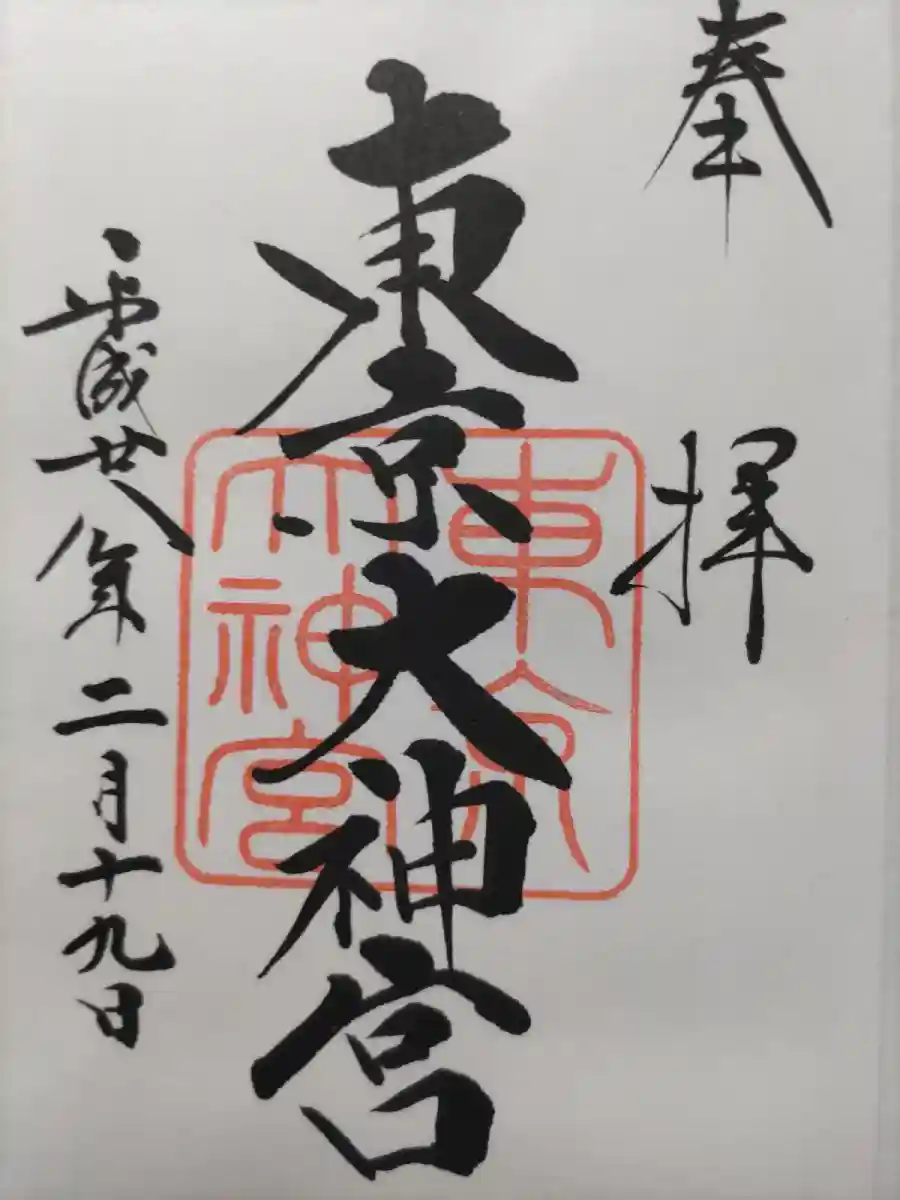 奉拝
東京大神宮
東京大神宮
平成廿八年二月十九日